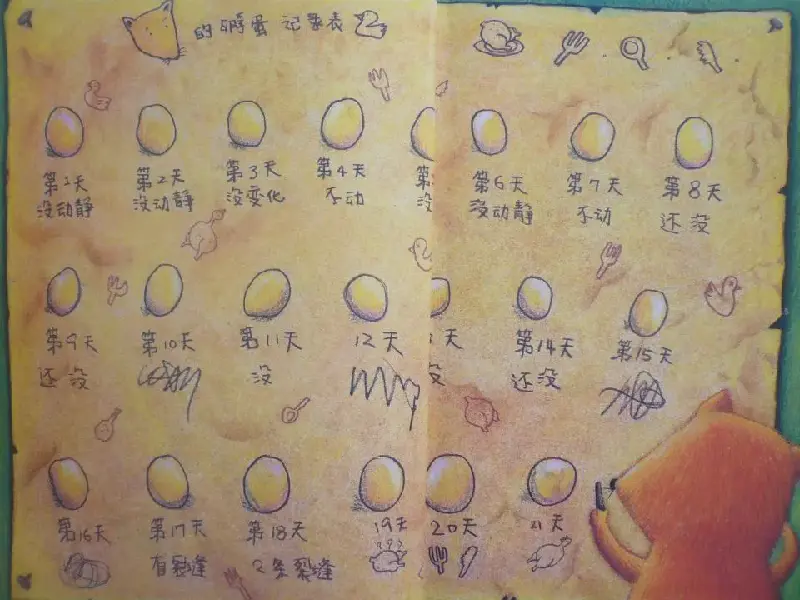 的孵蛋 记录表
第1天 第2天 第3天 第4天 第 第6天 第7天 第8天
没动静 没动静 没变化 不动 没 没动静 不动 还没
第9天 第10天 第11天 12天 天 第14天 第15天
还没 没 没 还没
第16天 第17天 第18天 19天 20天 21天
有裂缝 2条裂缝 ???